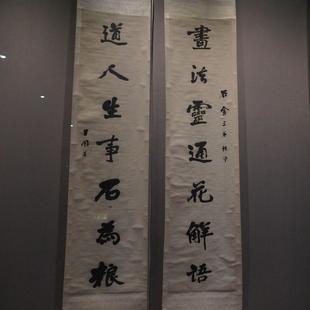 畫法靈通花解語
道人生事石為糧